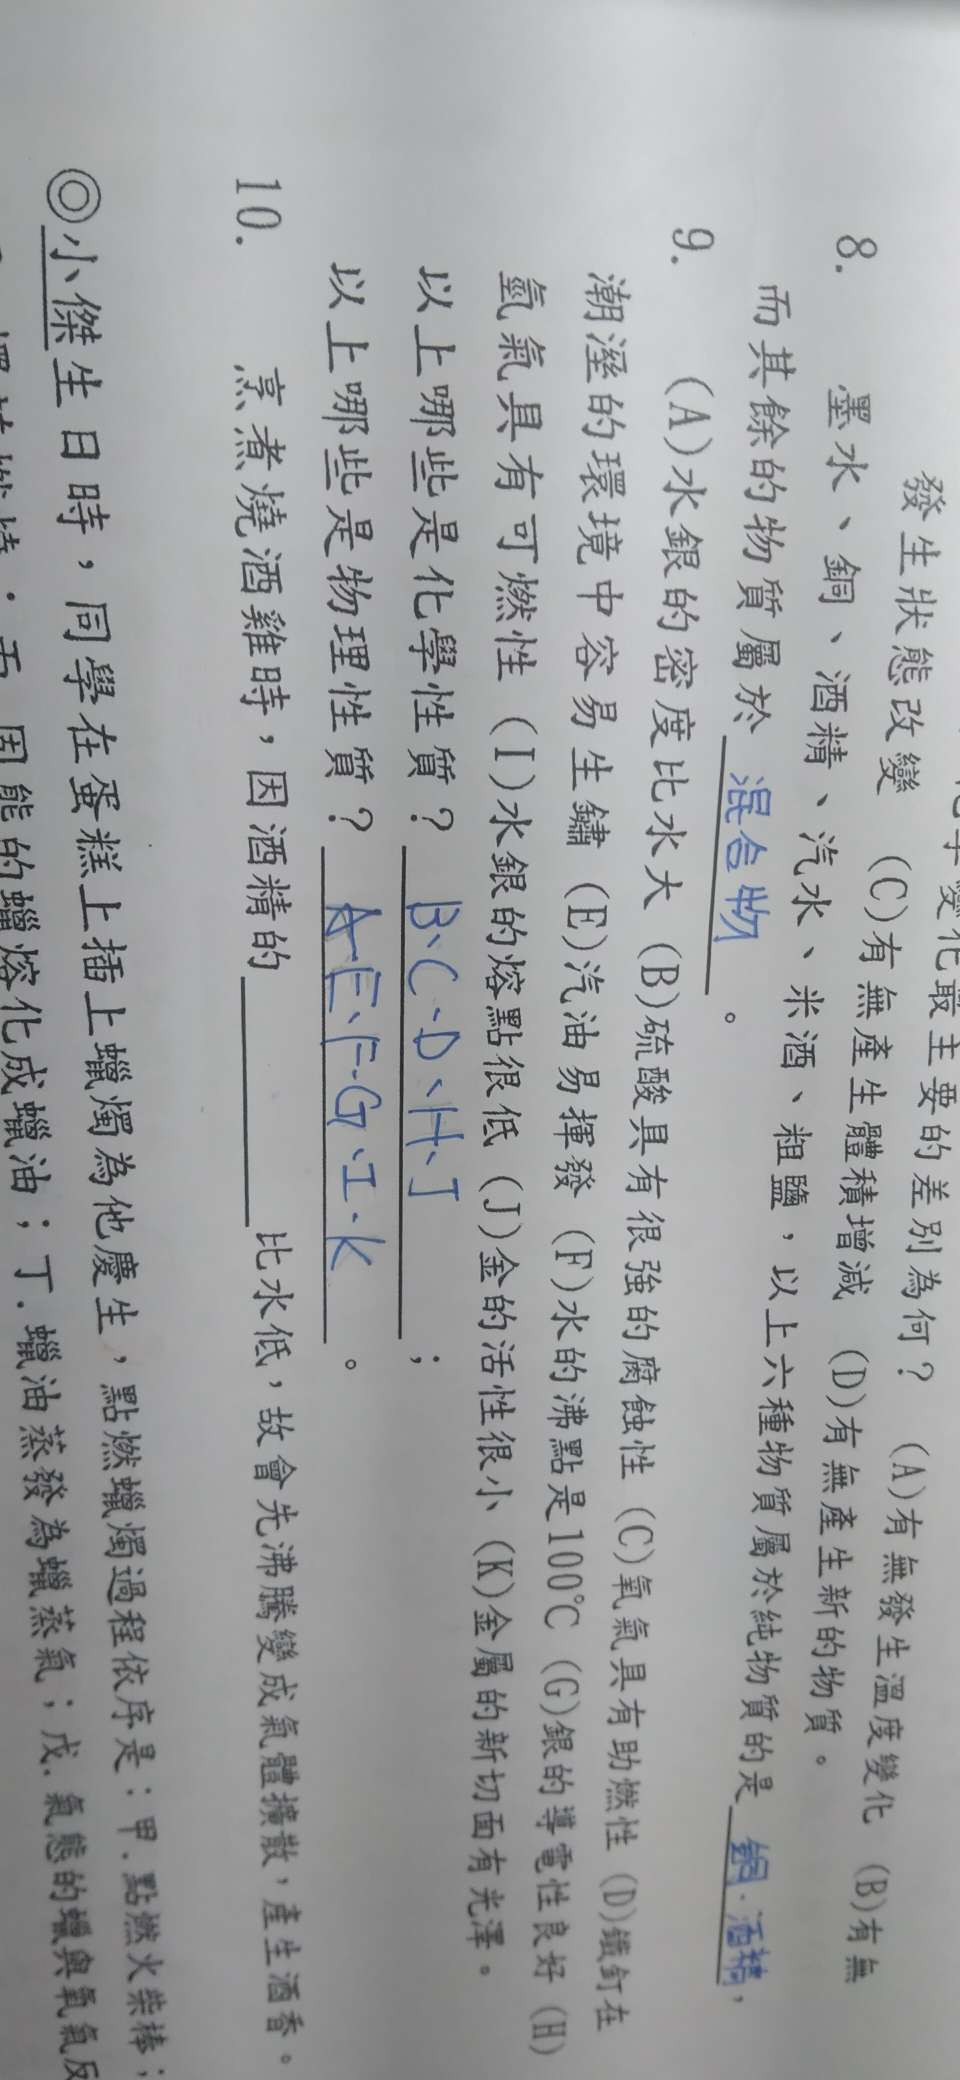 化學變化最主要的差別為何？ (A)有無發生溫度變化 (B)有無
發生狀態改變 (C)有無產生體積增減 (D)有無產生新的物質。
8. 墨水、銅、酒精、汽水、米酒、粗鹽，以上六種物質屬於純物質的是 銅、酒精，
而其餘的物質屬於 混合物 。
9. (A)水銀的密度比水大 (B)硫酸具有很強的腐蝕性 (C)氧氣具有助燃性 (D)鐵釘在
潮溼的環境中容易生鏽 (E)汽油易揮發 (F)水的沸點是100℃ (G)銀的導電性良好 (H)
氫氣具有可燃性 (I)水銀的熔點很低 (J)金的活性很小 (K)金屬的新切面有光澤。
以上哪些是化學性質？ B、C、D、H、J ；
以上哪些是物理性質？ A、E、F、G、I、K 。
10. 烹煮燒酒雞時，因酒精的 比水低，故會先沸騰變成氣體擴散，產生酒香。
◎小傑生日時，同學在蛋糕上插上蠟燭為他慶生，點燃蠟燭過程依序是：甲.點燃火柴棒；
固態的蠟熔化成蠟油；丁.蠟油蒸發為蠟蒸氣；戊.氣態的蠟與氧氣反